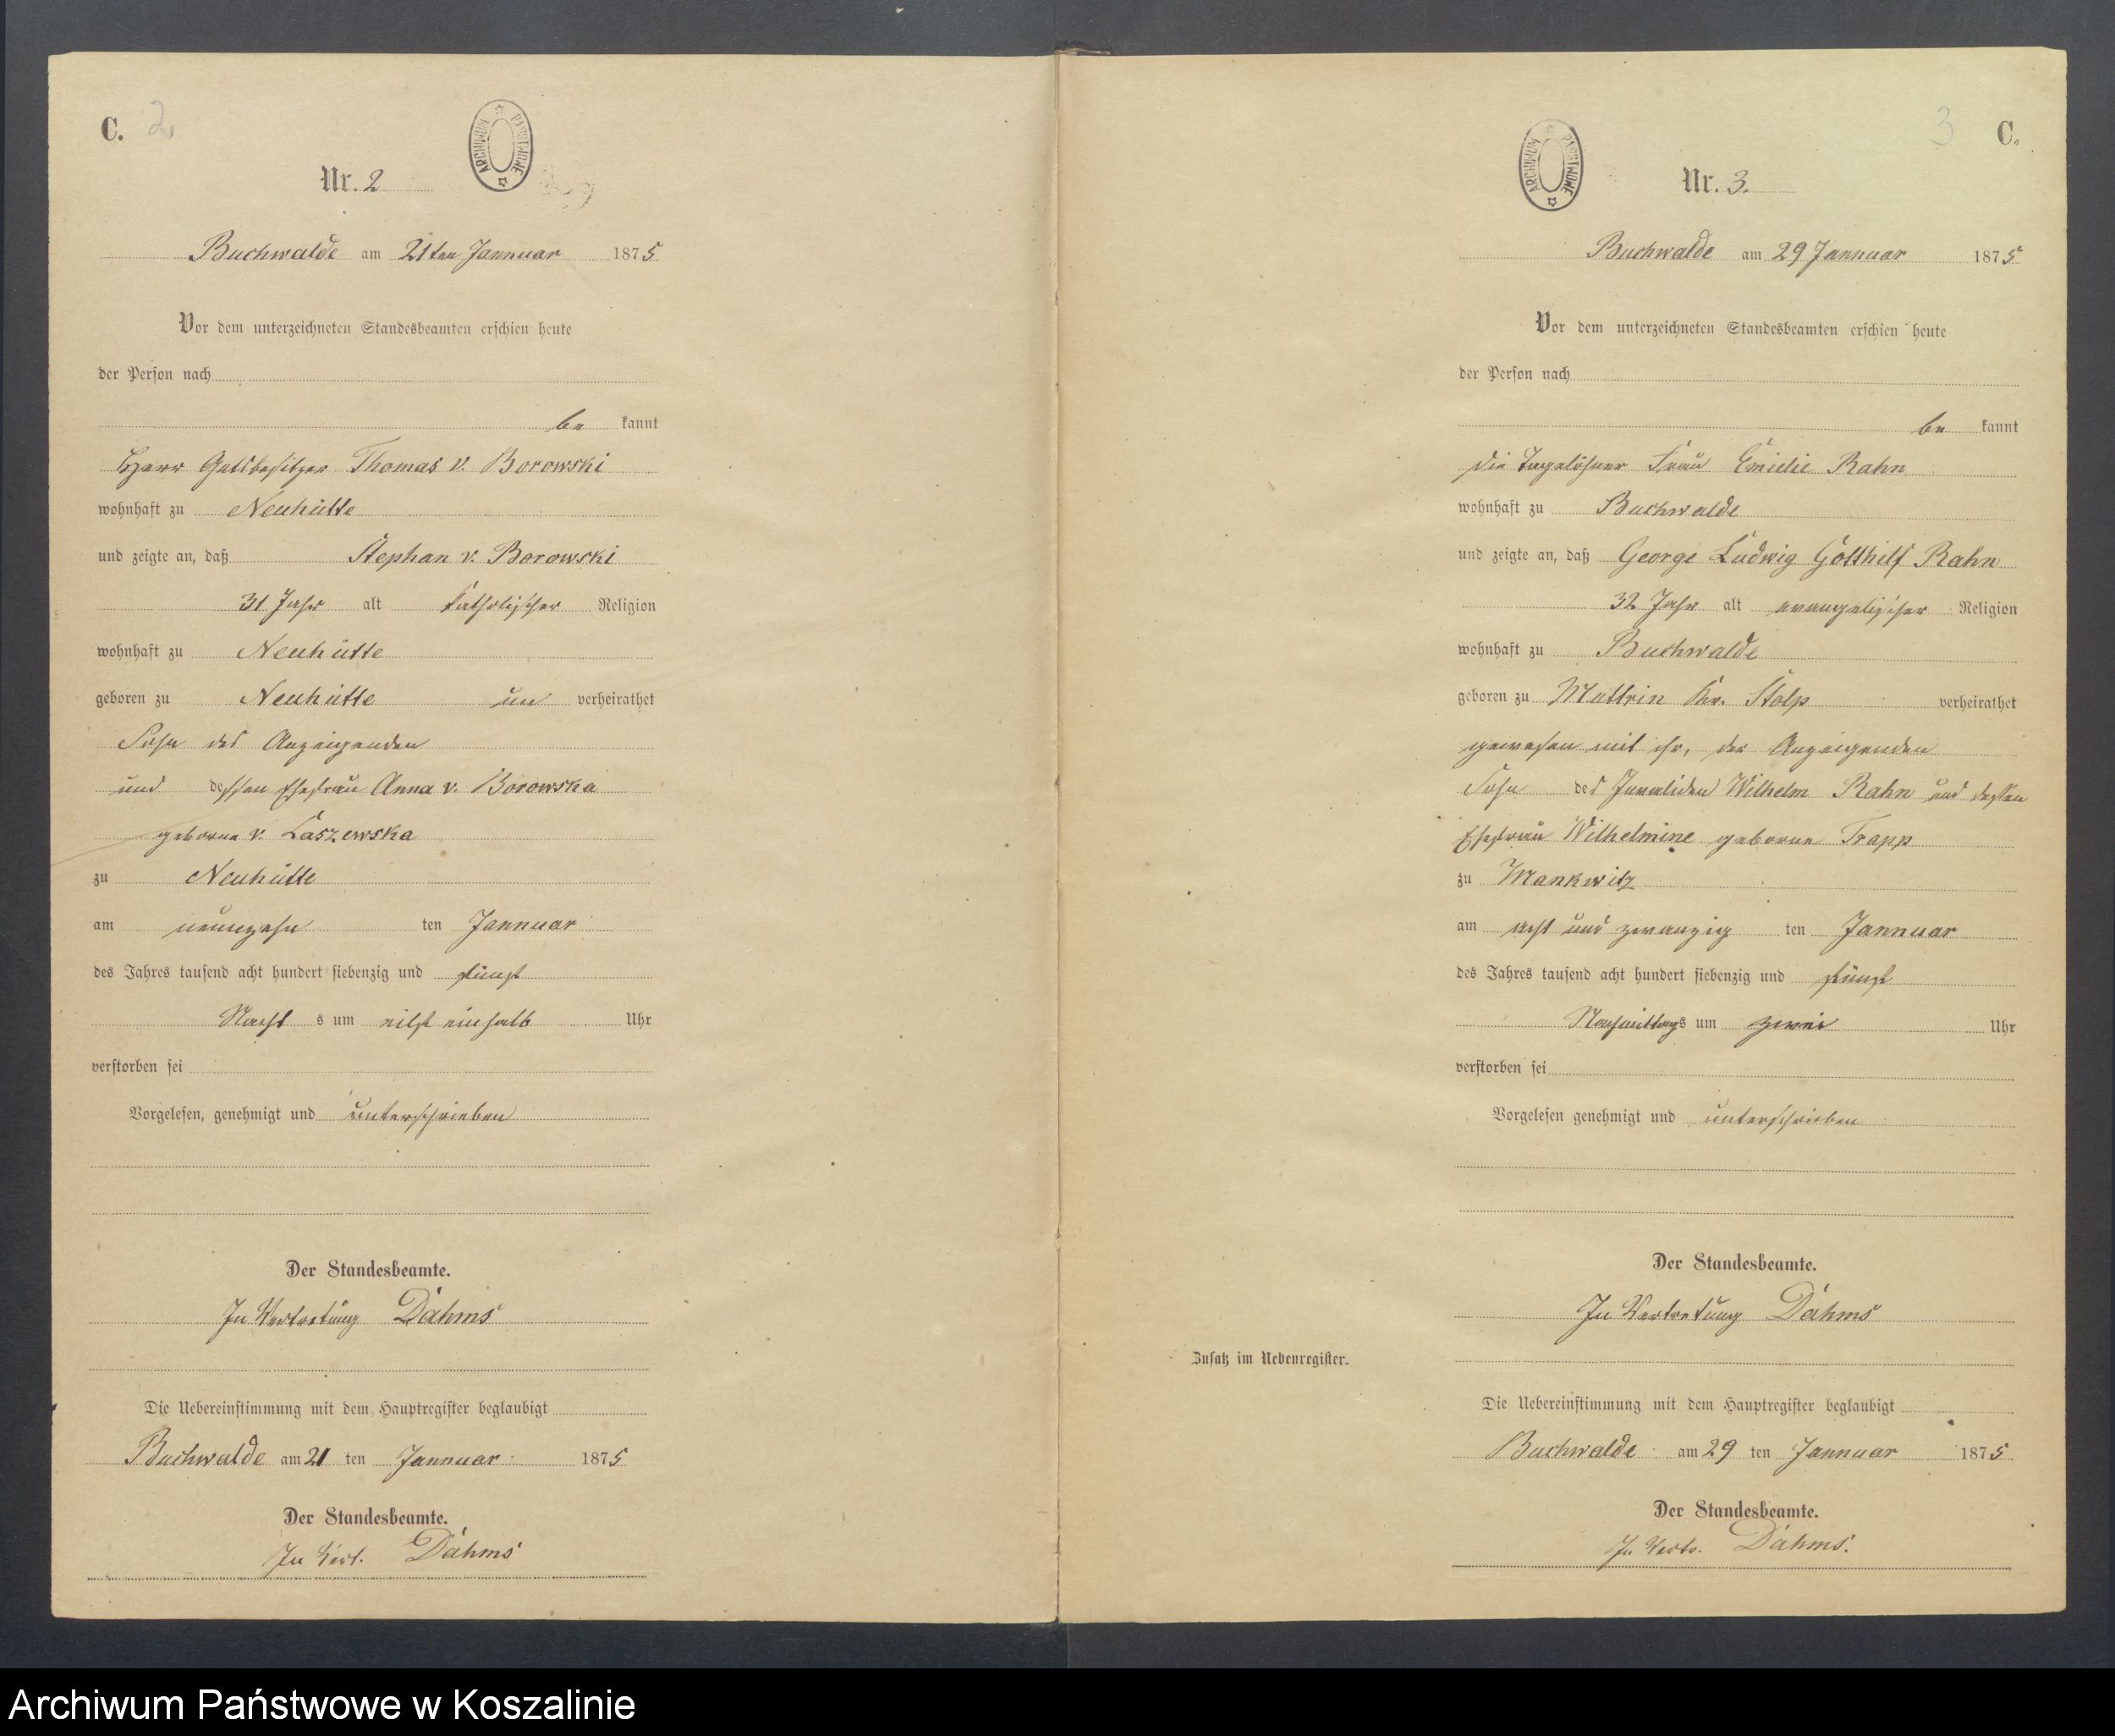 C. 2
ARCHIWUM PAŃSTWOWE
Nr. 2
Buchwalde am 21ten Jannuar 1875
Vor dem unterzeichneten Standesbeamten erschien heute
der Person nach
be kannt
Herr Gutsbesitzer Thomas v. Borowski
wohnhaft zu Neuhütte
und zeigte an, daß Stephan v. Borowski
31 Jahr alt katholischer Religion
wohnhaft zu Neuhütte
geboren zu Neuhütte un verheirathet
Sohn des Anzeigenden
und dessen Ehefrau Anna v. Borowska
geborne v. Laszewska
zu Neuhütte
am neunzehn ten Jannuar
des Jahres tausend acht hundert siebenzig und fünf
Nacht s um eilf einhalb Uhr
verstorben sei
Vorgelesen, genehmigt und unterschrieben
Der Standesbeamte.
In Vertretung Dahms
Die Uebereinstimmung mit dem Hauptregister beglaubigt
Buchwalde am 21 ten Jannuar 1875
Der Standesbeamte.
In Vert. Dahms
3 C.
ARCHIWUM PAŃSTWOWE
Nr. 3.
Buchwalde am 29 Jannuar 1875
Vor dem unterzeichneten Standesbeamten erschien heute
der Person nach
be kannt
die Tagelöhner Frau Emilie Rahn
wohnhaft zu Buchwalde
und zeigte an, daß George Ludwig Gotthilf Rahn
32 Jahr alt evangelischer Religion
wohnhaft zu Buchwalde
geboren zu Muttrin Kr. Stolp verheirathet
gewesen mit ihr, der Anzeigenden
Sohn des Invaliden Wilhelm Rahn und dessen
Ehefrau Wilhelmine geborne Trapp
zu Mankwitz
am acht und zwanzig ten Jannuar
des Jahres tausend acht hundert siebenzig und fünf
Nachmittags um zwei Uhr
verstorben sei
Vorgelesen genehmigt und unterschrieben
Der Standesbeamte.
In Vertretung Dahms
Zusatz im Nebenregister.
Die Uebereinstimmung mit dem Hauptregister beglaubigt
Buchwalde am 29 ten Jannuar 1875
Der Standesbeamte.
In Vertr. Dahms.
Archiwum Państwowe w Koszalinie